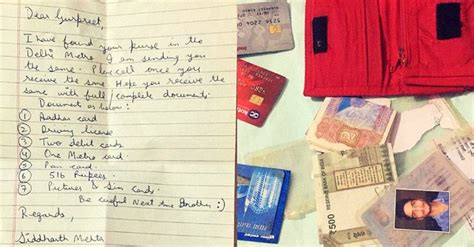 Dear Gurpreet,
I have found your purse in the
Delhi Metro. I am sending you
the same. Please call once you
receive the same. Hope you receive the
same with full/complete documents
Documents as below:
1 Aadhar card
2 Driving license
3 Two debit cards
4 One Metro card
5 Pan card
6 516 Rupees.
7 Pictures & Sim cards.
Be careful Next time Brother :)
Regards,
Siddharth Mehta